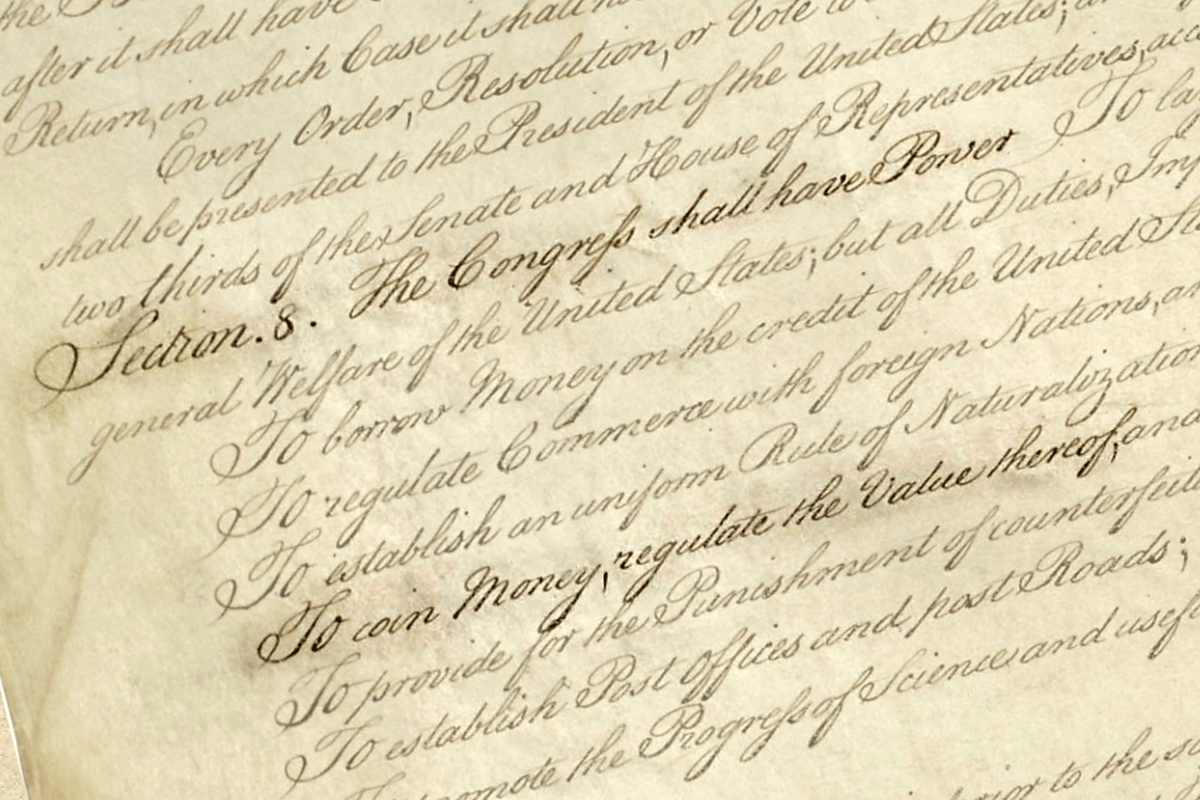 after it shall have
Return, in which Case it shall
Every Order, Resolution, or Vote to
shall be presented to the President of the United States;
two thirds of the Senate and House of Representatives,
Section. 8. The Congreſs shall have Power To
general Welfare of the United States; but all Duties,
To borrow Money on the credit of the United
To regulate Commerce with foreign Nations,
To establish an uniform Rule of Naturalization
To coin Money, regulate the Value thereof, and
To provide for the Punishment of
To establish Post Offices and post Roads;
the Progreſs of Science and
to the